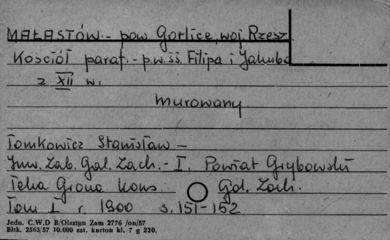 MAŁASTÓW.- pow Gorlice, woj. Rzesz
Kościół paraf.- p.w. śś. Filipa i Jakuba
z XII w.
murowany
Tomkowicz Stanisław -
Inw. Zab. Gal. Zach. - I. Powiat Grybowski
Teka Grona Kons. Gal. Zach.
Tom I r 1900 s. 151-152
Jedn. C.W.D B/Olsztyn Zam 2776 /on/57
Bltk. 2563/57 10.000 szt. karton kl. 7 g 220.